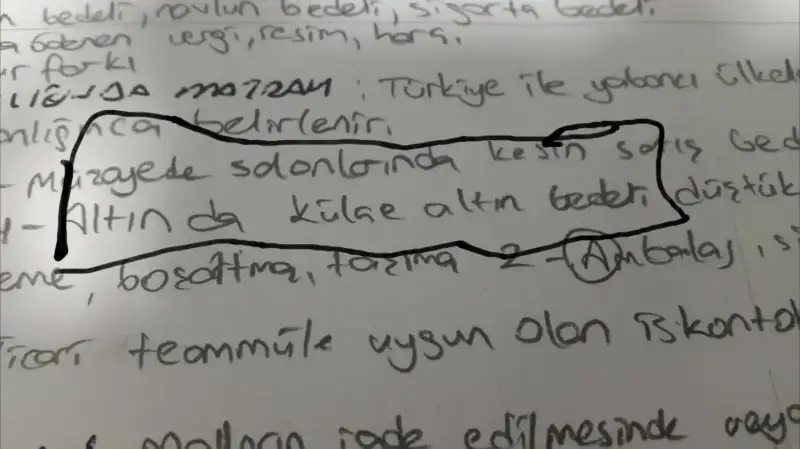 n bedeli, navlun bedeli, sigorta bedeli.
a ödenen vergi, resim, harç.
ur farkı
MATRAH: Türkiye ile yabancı ülkele
anlığınca belirlenir.
- Müzayede salonlarında kesin satış bed
- Altın da külçe altın bedeli düştük
eme, boşaltma, taşıma 2 - Ambalaj, si
icari teammüle uygun olan iskontol
malların iade edilmesinde veya